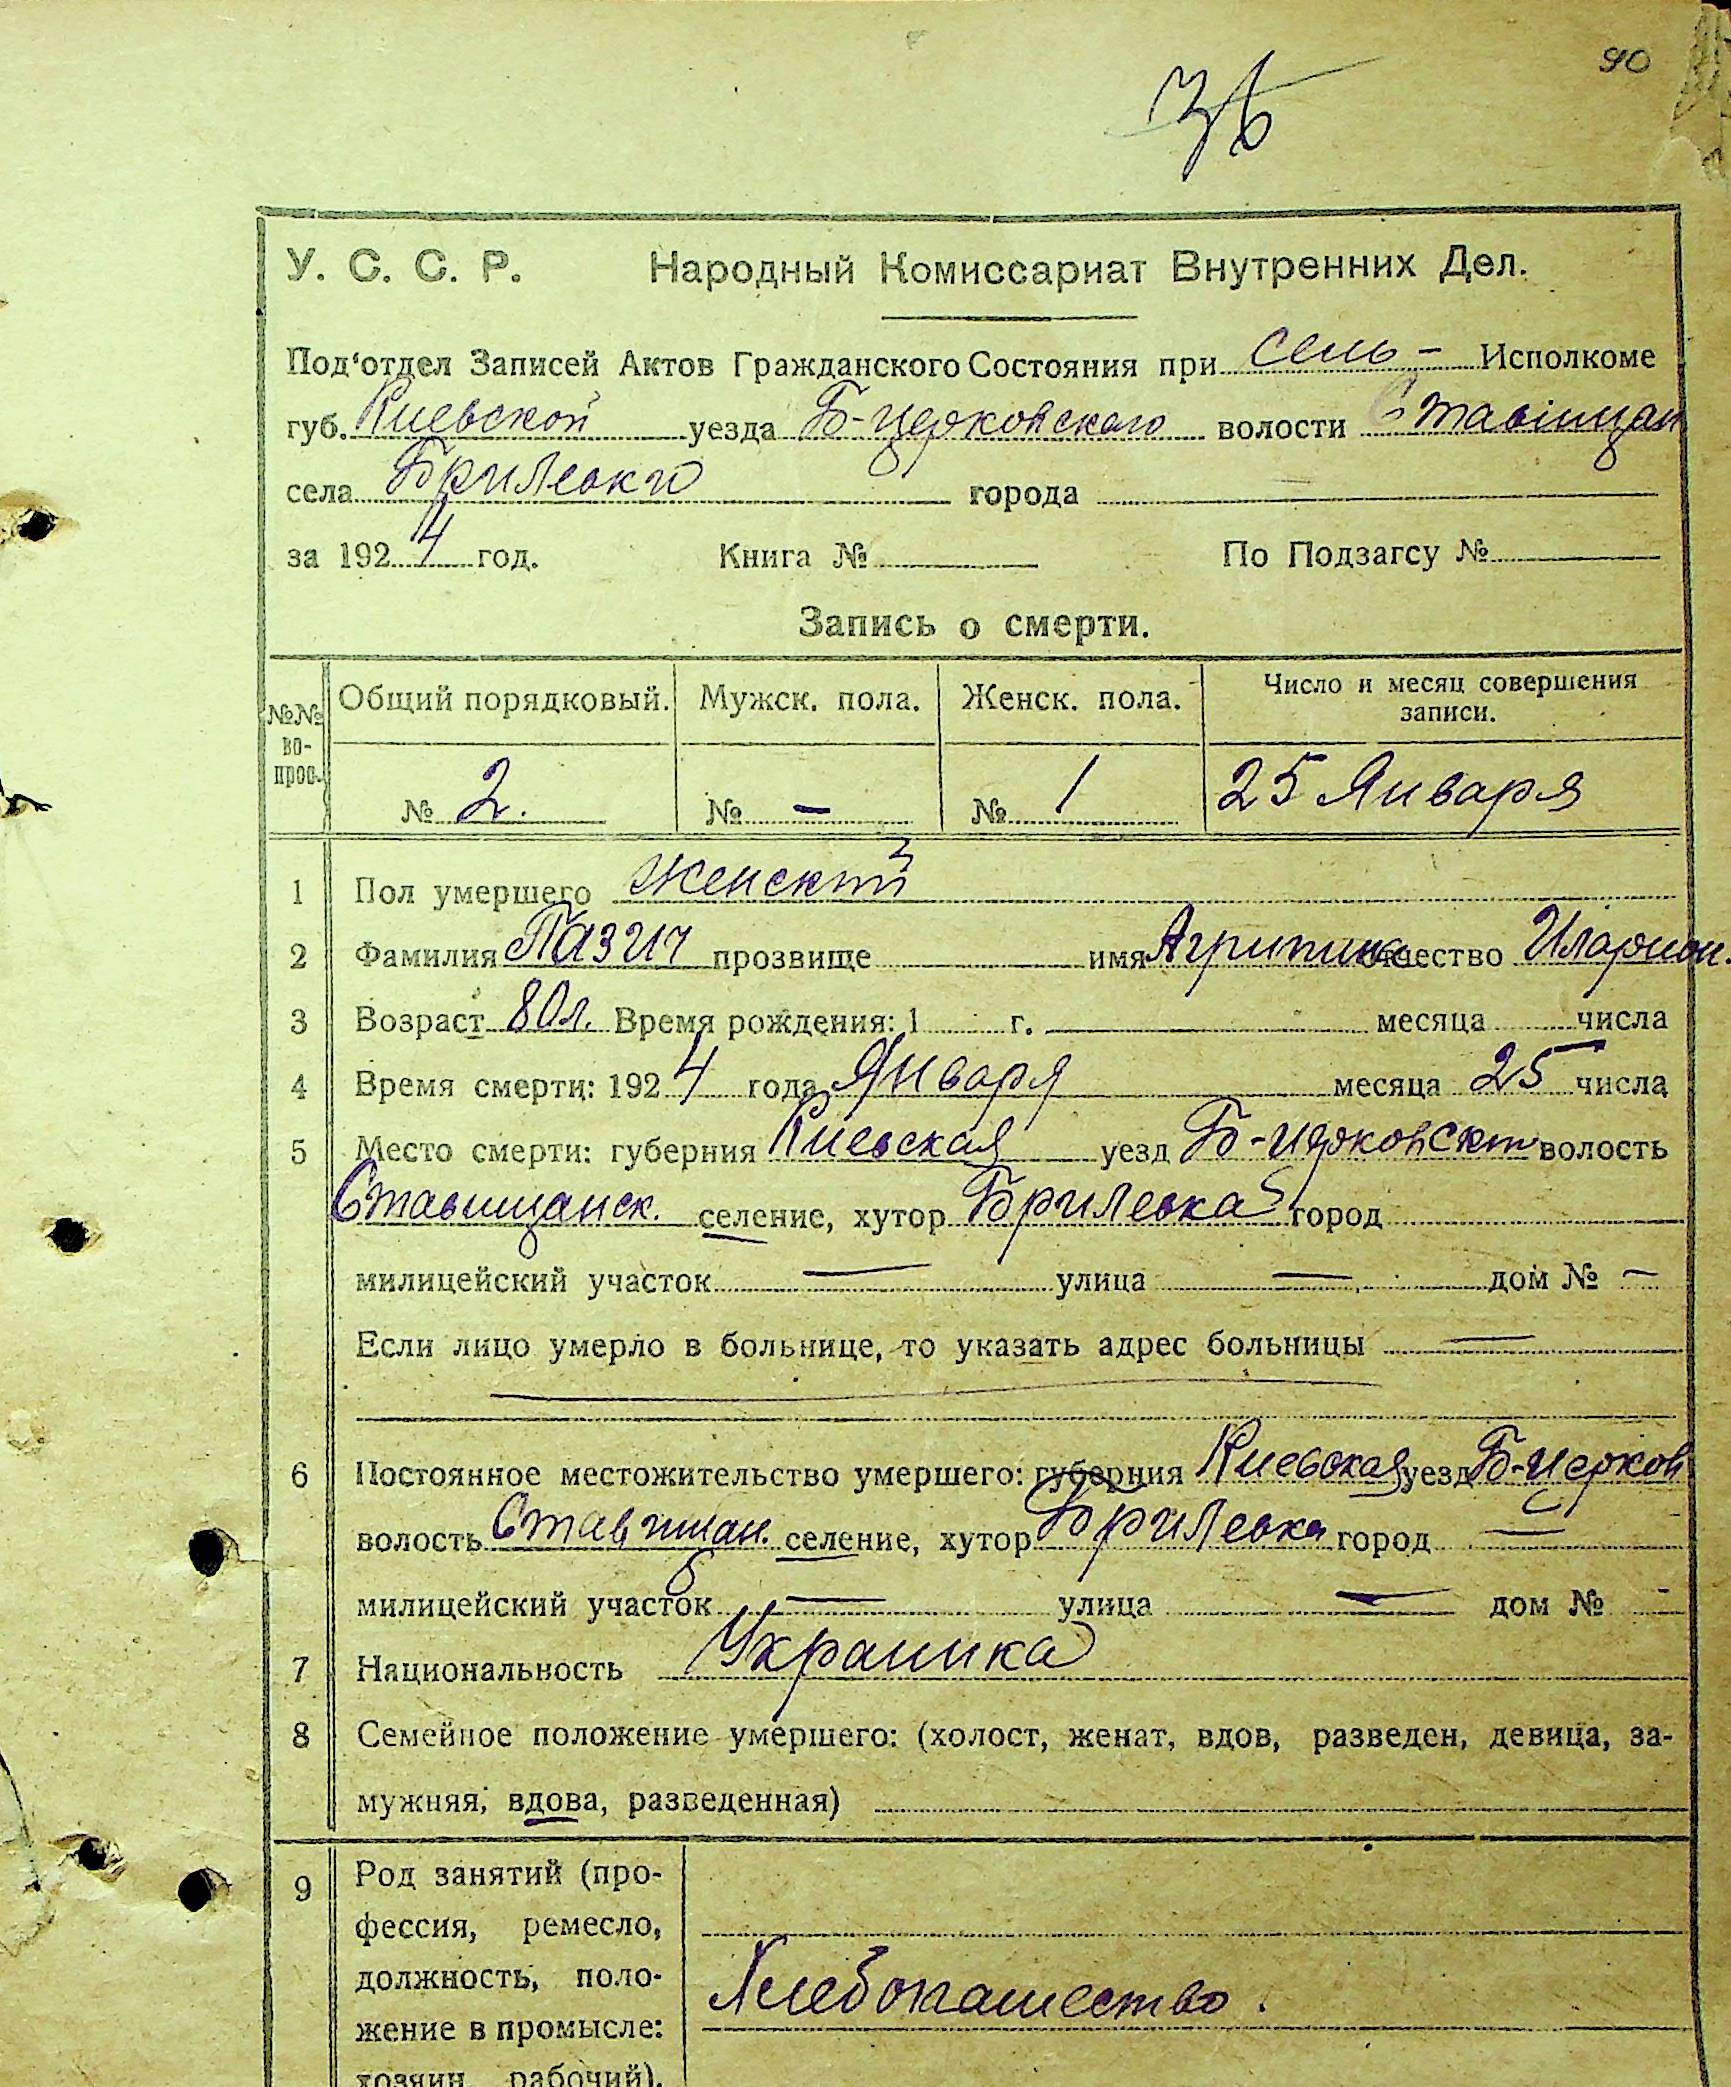 90
36
У. С. С. Р. Народный Комиссариат Внутренних Дел.
Под'отдел Записей Актов Гражданского Состояния при сель- Исполкоме
губ. Киевской уезда Б-Церковского волости Ставищан
села Брилевки города
за 1924 год. Книга № По Подзагсу №
Запись о смерти.
№№ во-прос. Общий порядковый. Мужск. пола. Женск. пола. Число и месяц совершения записи.
№ 2. № - № 1 25 Января
1 Пол умершего женский
2 Фамилия Пазич прозвище имя Агрипина отчество Иларион.
3 Возраст 80 л. Время рождения: 1 г. месяца числа
4 Время смерти: 1924 года Января месяца 25 числа
5 Место смерти: губерния Киевская уезд Б-Церковск волость
Ставищанск. селение, хутор Брилевка город
милицейский участок — улица — дом № -
Если лицо умерло в больнице, то указать адрес больницы —
6 Постоянное местожительство умершего: губерния Киевская уезд Б-Церков
волость Ставищан. селение, хутор Брилевка город —
милицейский участок — улица — дом № -
7 Национальность Украинка
8 Семейное положение умершего: (холост, женат, вдов, разведен, девица, за-
мужняя, вдова, разведенная)
9 Род занятий (про-
фессия, ремесло,
должность, поло-
жение в промысле:
хозяин, рабочий).
Хлебопашество.